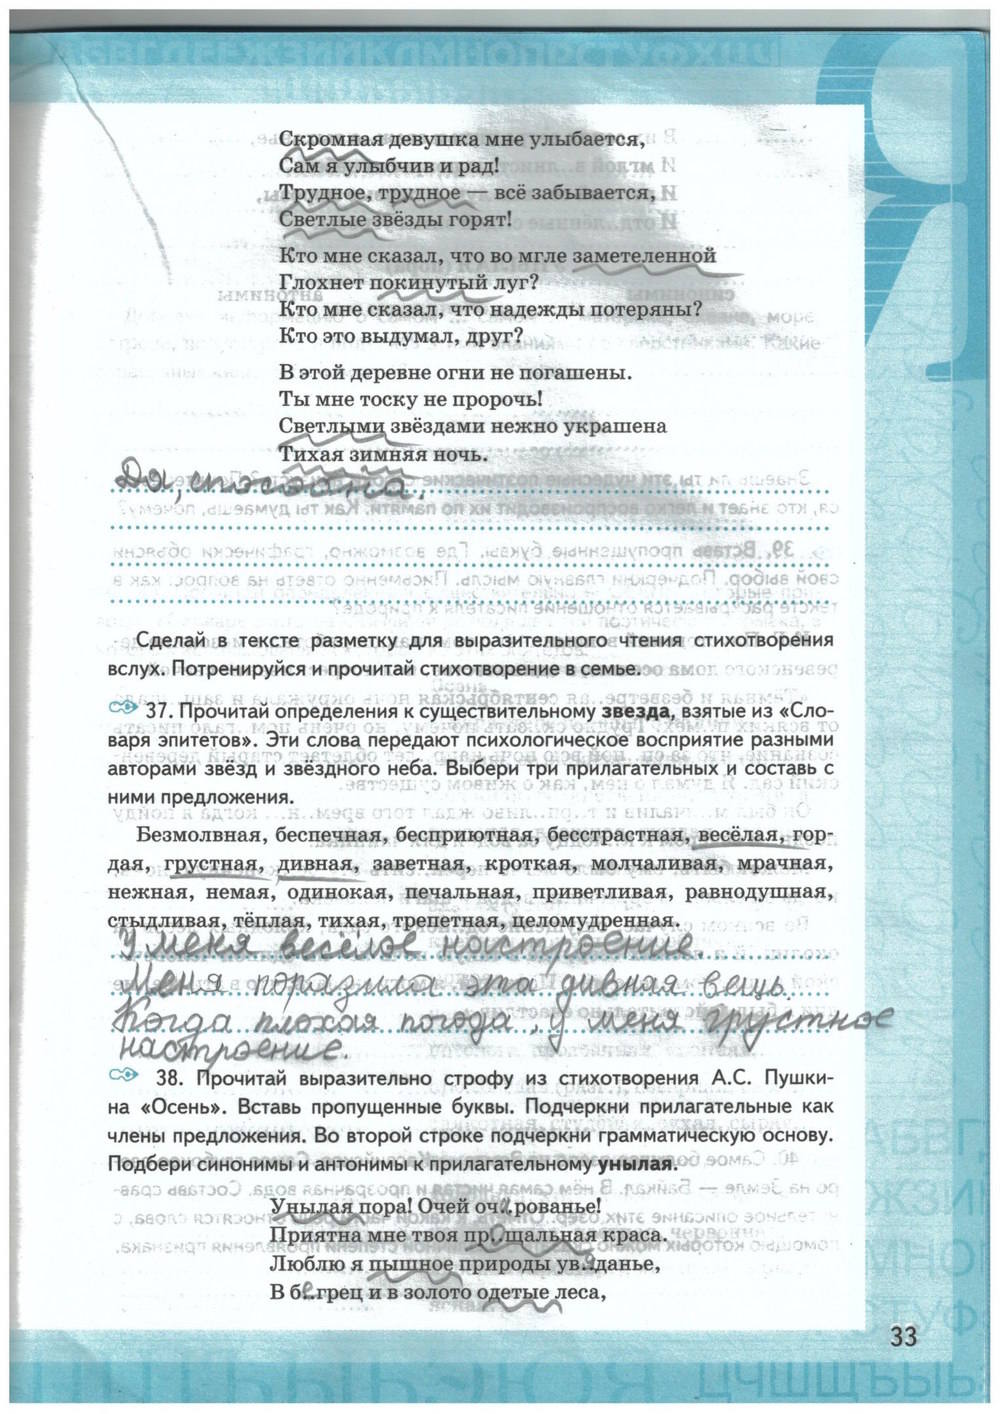 Скромная девушка мне улыбается,
Сам я улыбчив и рад!
Трудное, трудное — всё забывается,
Светлые звёзды горят!
Кто мне сказал, что во мгле заметеленной
Глохнет покинутый луг?
Кто мне сказал, что надежды потеряны?
Кто это выдумал, друг?
В этой деревне огни не погашены.
Ты мне тоску не пророчь!
Светлыми звёздами нежно украшена
Тихая зимняя ночь.
Да, способна.
Сделай в тексте разметку для выразительного чтения стихотворения
вслух. Потренируйся и прочитай стихотворение в семье.
37. Прочитай определения к существительному звезда, взятые из «Сло-
варя эпитетов». Эти слова передают психологическое восприятие разными
авторами звёзд и звёздного неба. Выбери три прилагательных и составь с
ними предложения.
Безмолвная, беспечная, бесприютная, бесстрастная, весёлая, гор-
дая, грустная, дивная, заветная, кроткая, молчаливая, мрачная,
нежная, немая, одинокая, печальная, приветливая, равнодушная,
стыдливая, тёплая, тихая, трепетная, целомудренная.
У меня весёлое настроение.
Меня поразила эта дивная вещь.
Когда плохая погода, у меня грустное
настроение.
38. Прочитай выразительно строфу из стихотворения А.С. Пушки-
на «Осень». Вставь пропущенные буквы. Подчеркни прилагательные как
члены предложения. Во второй строке подчеркни грамматическую основу.
Подбери синонимы и антонимы к прилагательному унылая.
Унылая пора! Очей оч..рованье!
Приятна мне твоя пр..щальная краса.
Люблю я пышное природы ув..данье,
В б..грец и в золото одетые леса,
33